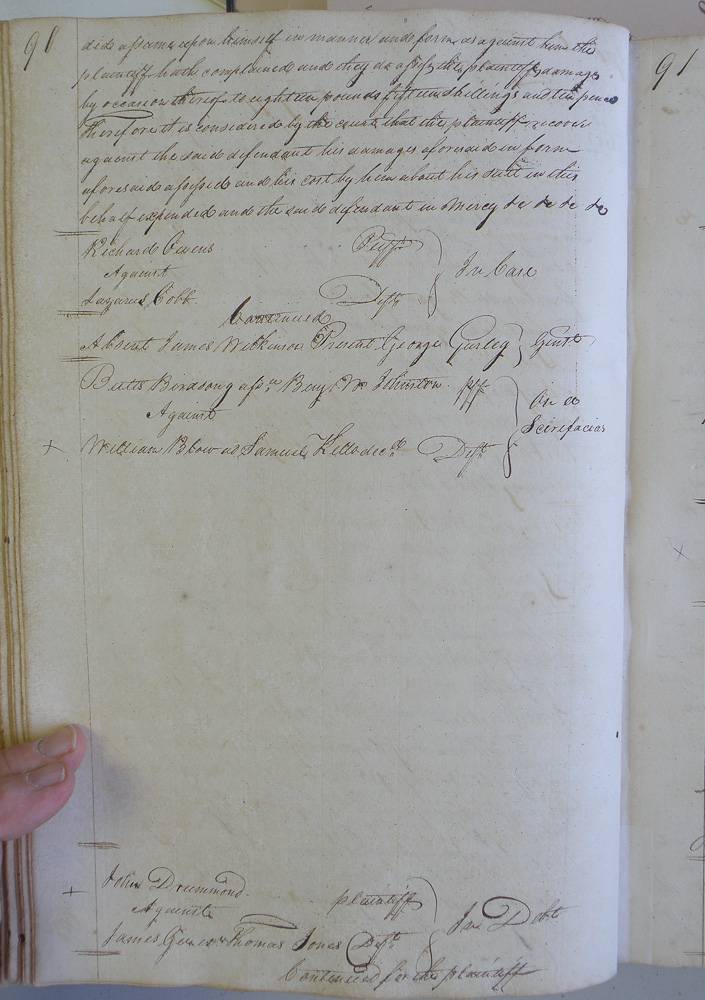 90
did assume upon himself in manner and form as against him the
plaintiff hath complained and they do assess the plaintiffs damage
by occasion thereof to eighteen pounds fifteen shillings and ten pence
therefore it is considered by the court that the plaintiff recover
against the said defendant his damages aforesaid in form
aforesaid assessed and his cost by him about his suit in this
behalf expended and the said defendant in Mercy &c &c &c &c
Richard Owens Pltff
Against In Case
Lazarus Cobb Deft
Continued
Absent James Wilkinson Present George Gurley Gent
Birdsong assee Benj Wm Johnston plff
Against On a Scirefacias
+ William Blow ad Samuel Kello decd Deft
+ John Drummond plaintiff
Against In Debt
James & Thomas Jones Deft
Continued for the plaintiff
91